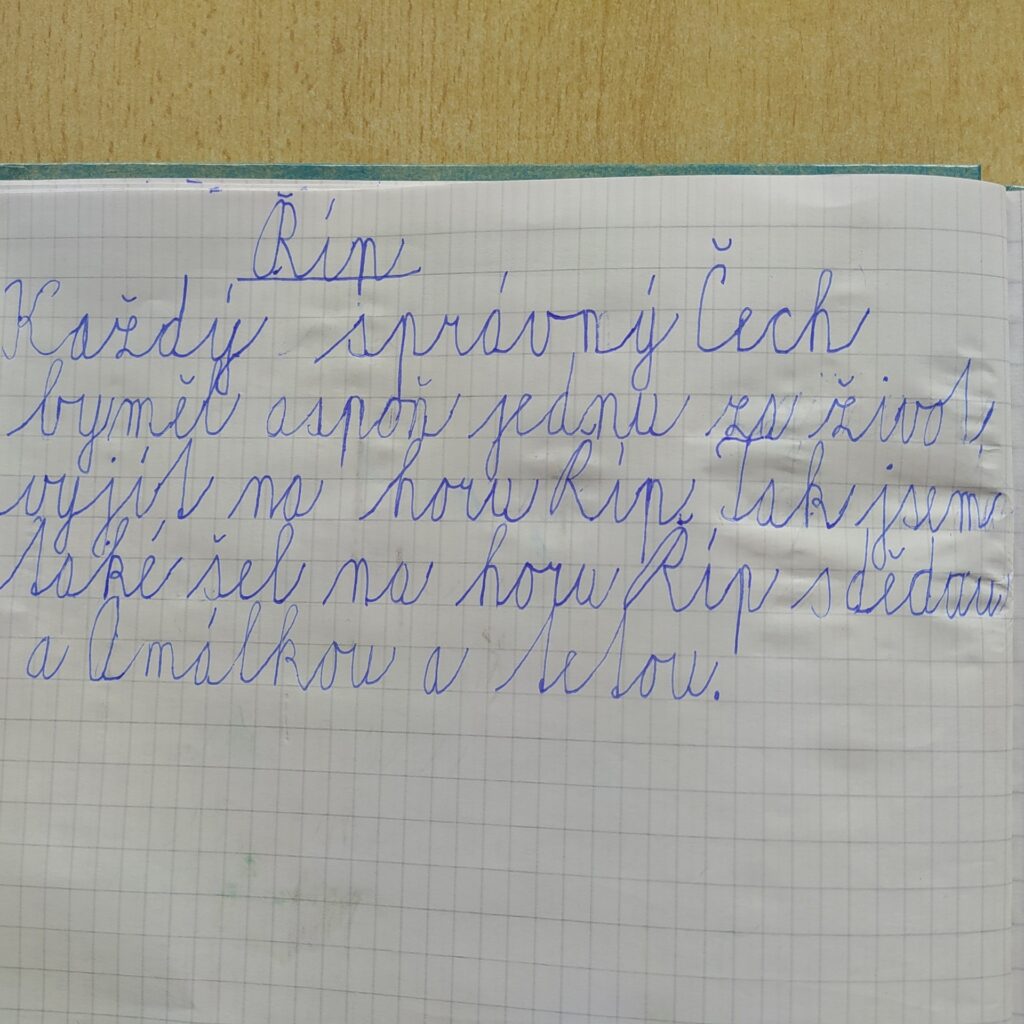 Říp
Každý správný Čech
byměl aspoň jednu za život
vyjít na horu Říp. Tak jsem
také šel na horu Říp s dědou
a Amálkou a tetou.